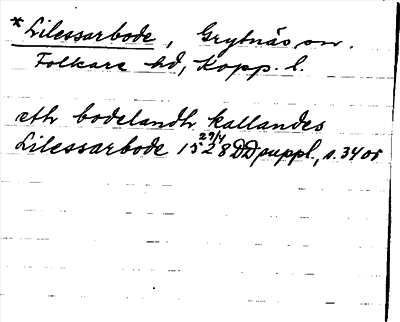 *Lilessarbode, Grytnäs sn.
Folkare hd, Kopp. l.
eth bodelandh kallandes
Lilessarbode 15 29/4 28 DD suppl., s. 34 or